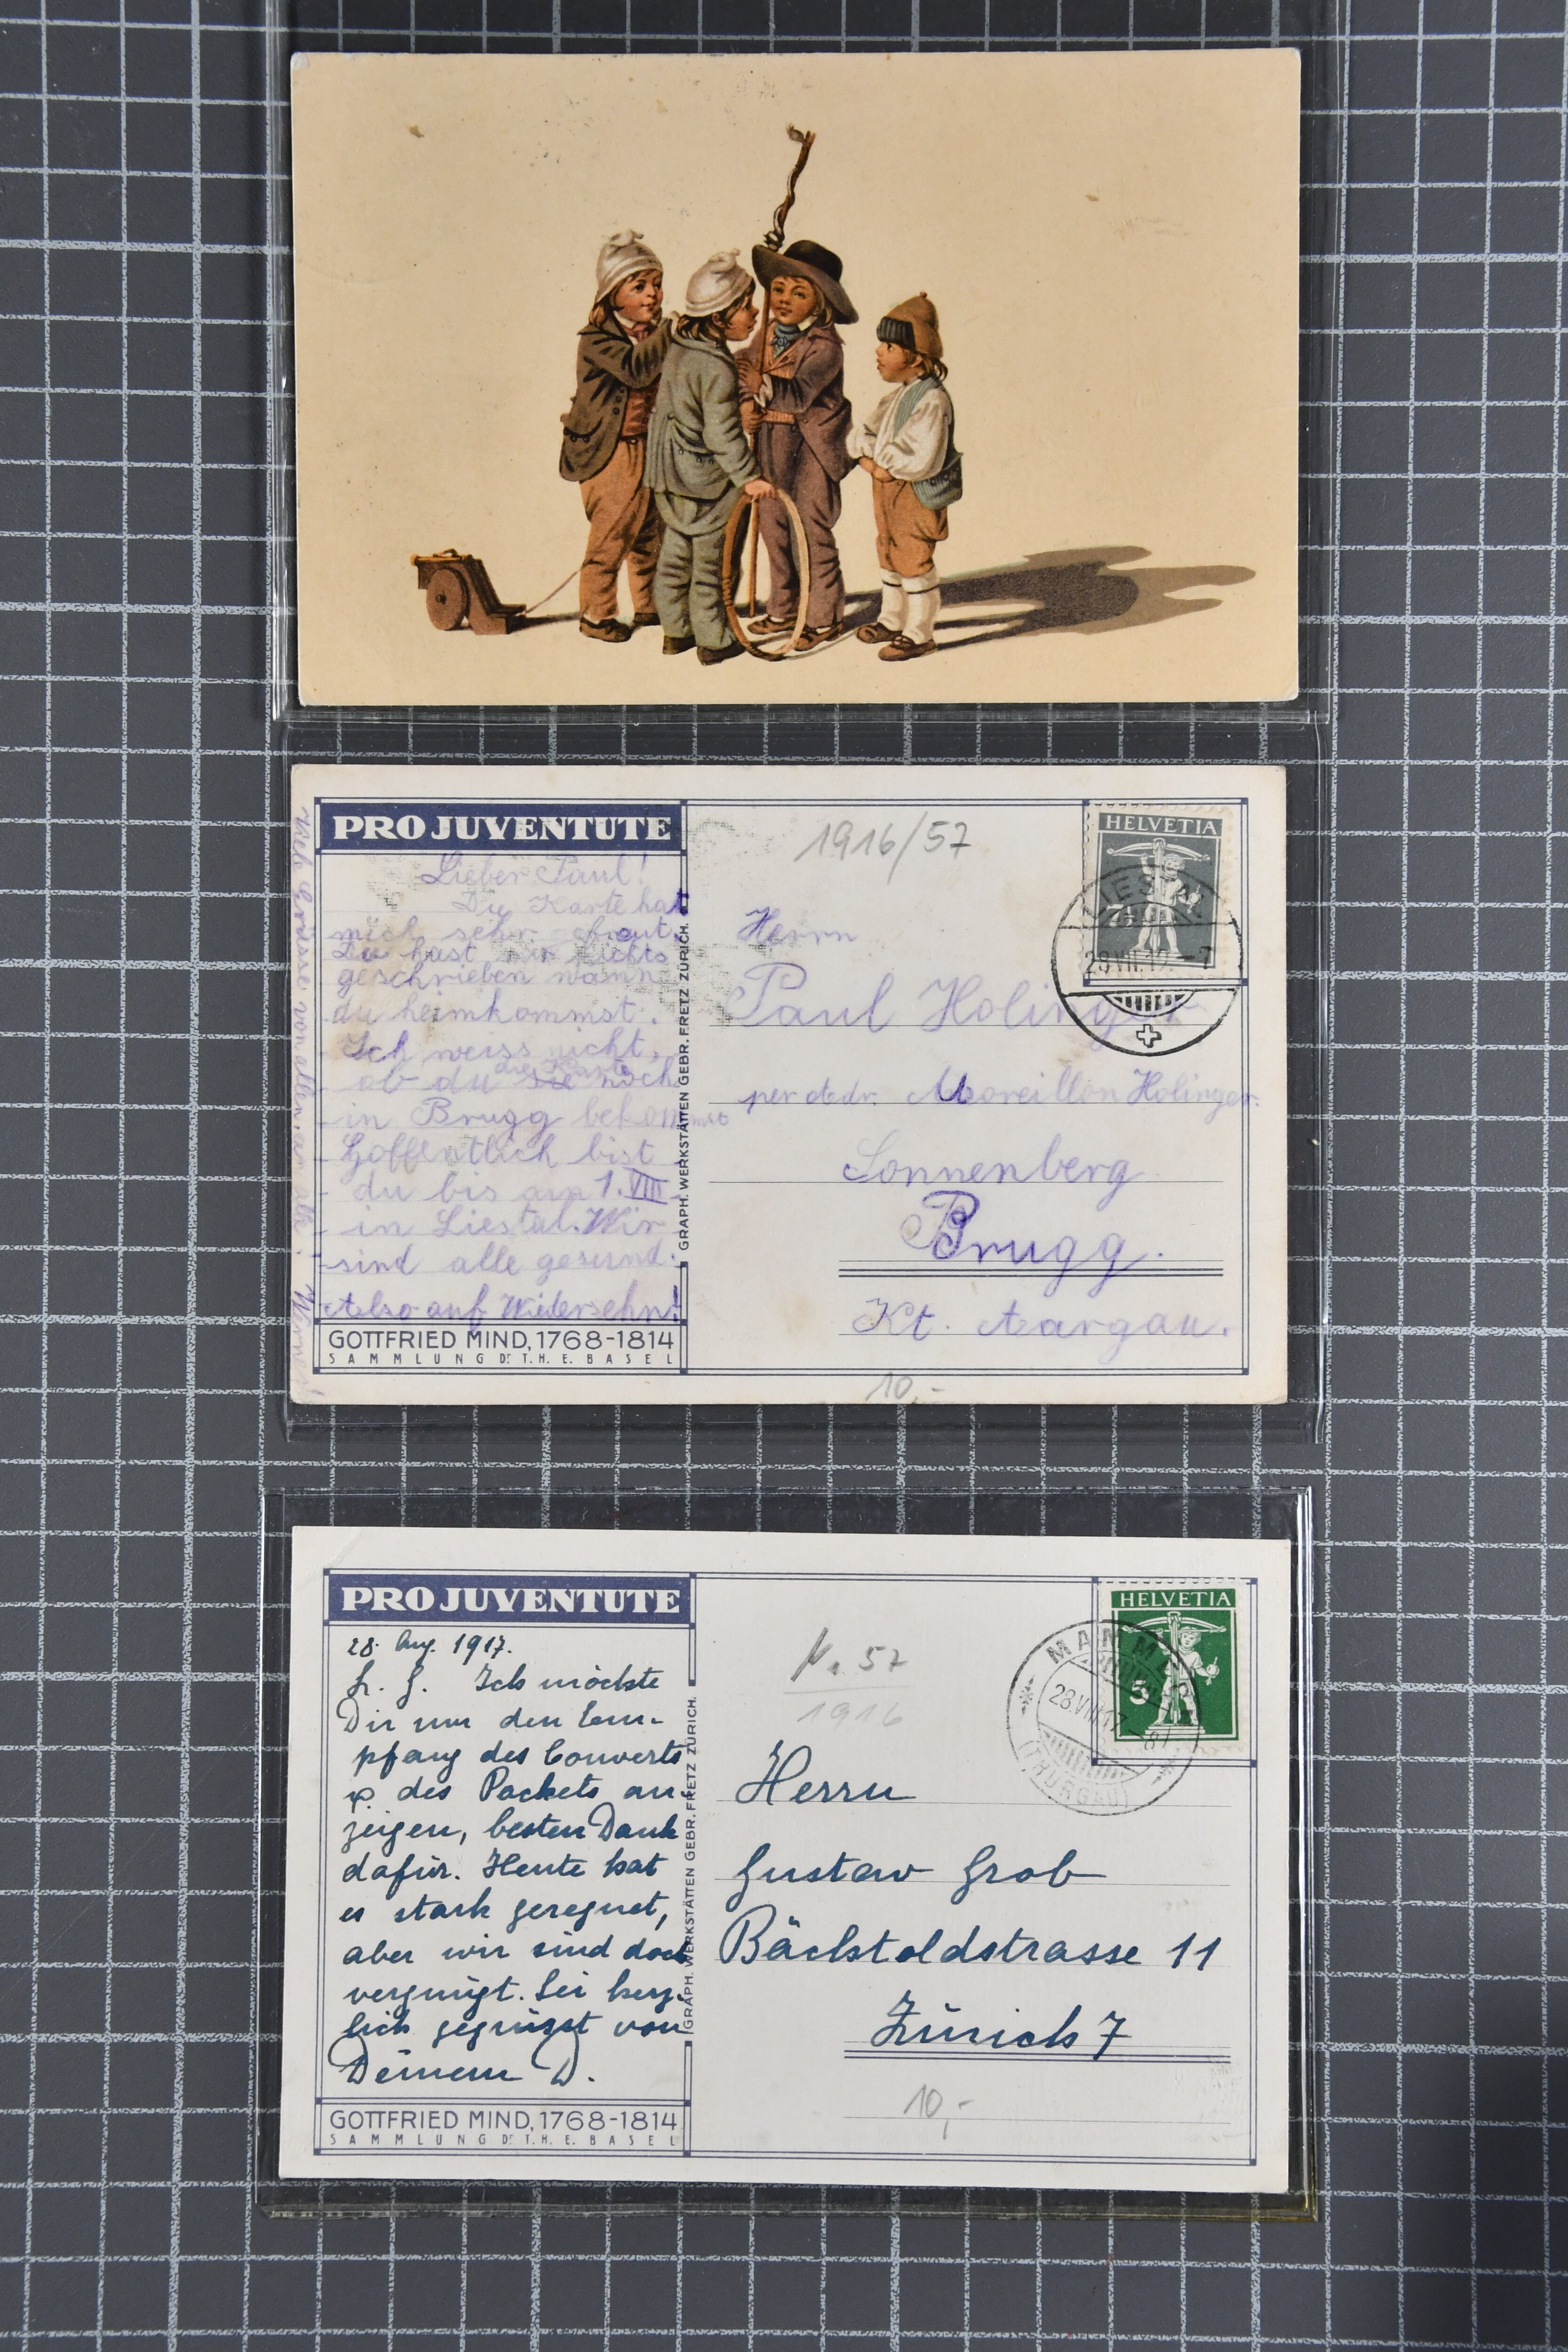 PRO JUVENTUTE
Lieber Paul!
Die Karte hat
mich sehr gefreut.
Du hast mir nichts
geschrieben wann
du heimkommst.
Ich weiss nicht,
ob du die Karte noch
in Brugg bekommst
Hoffentlich bist
du bis am 1. VIII
in Liestal. Wir
sind alle gesund.
Also auf Wiedersehn!
Viele Grüsse von allen an alle! Werner!
GOTTFRIED MIND, 1768-1814
SAMMLUNG DR. T. H. E. BASEL
GRAPH. WERKSTÄTTEN GEBR. FRETZ ZÜRICH.
1916/57
HELVETIA
7½
LIESTAL
Herrn
Paul Holinger
per Adr. Moreillon Holinger.
Sonnenberg
Brugg.
Kt. Aargau.
10,-
PRO JUVENTUTE
28. Aug. 1917.
L. G. Ich möchte
Dir nur den Em-
pfang des Couverts
u. des Packets an-
zeigen, besten Dank
dafür. Heute hat
es stark geregnet,
aber wir sind doch
vergnügt. Sei herz-
lich gegrüsst von
Deinem D.
GOTTFRIED MIND, 1768-1814
SAMMLUNG DR. T. H. E. BASEL
GRAPH. WERKSTÄTTEN GEBR. FRETZ ZÜRICH.
N. 57
1916
HELVETIA
5
MAMMERN
28.VIII.17.-8
(THURGAU)
Herrn
Gustav Grob
Bächtoldstrasse 11
Zürich 7
10,-